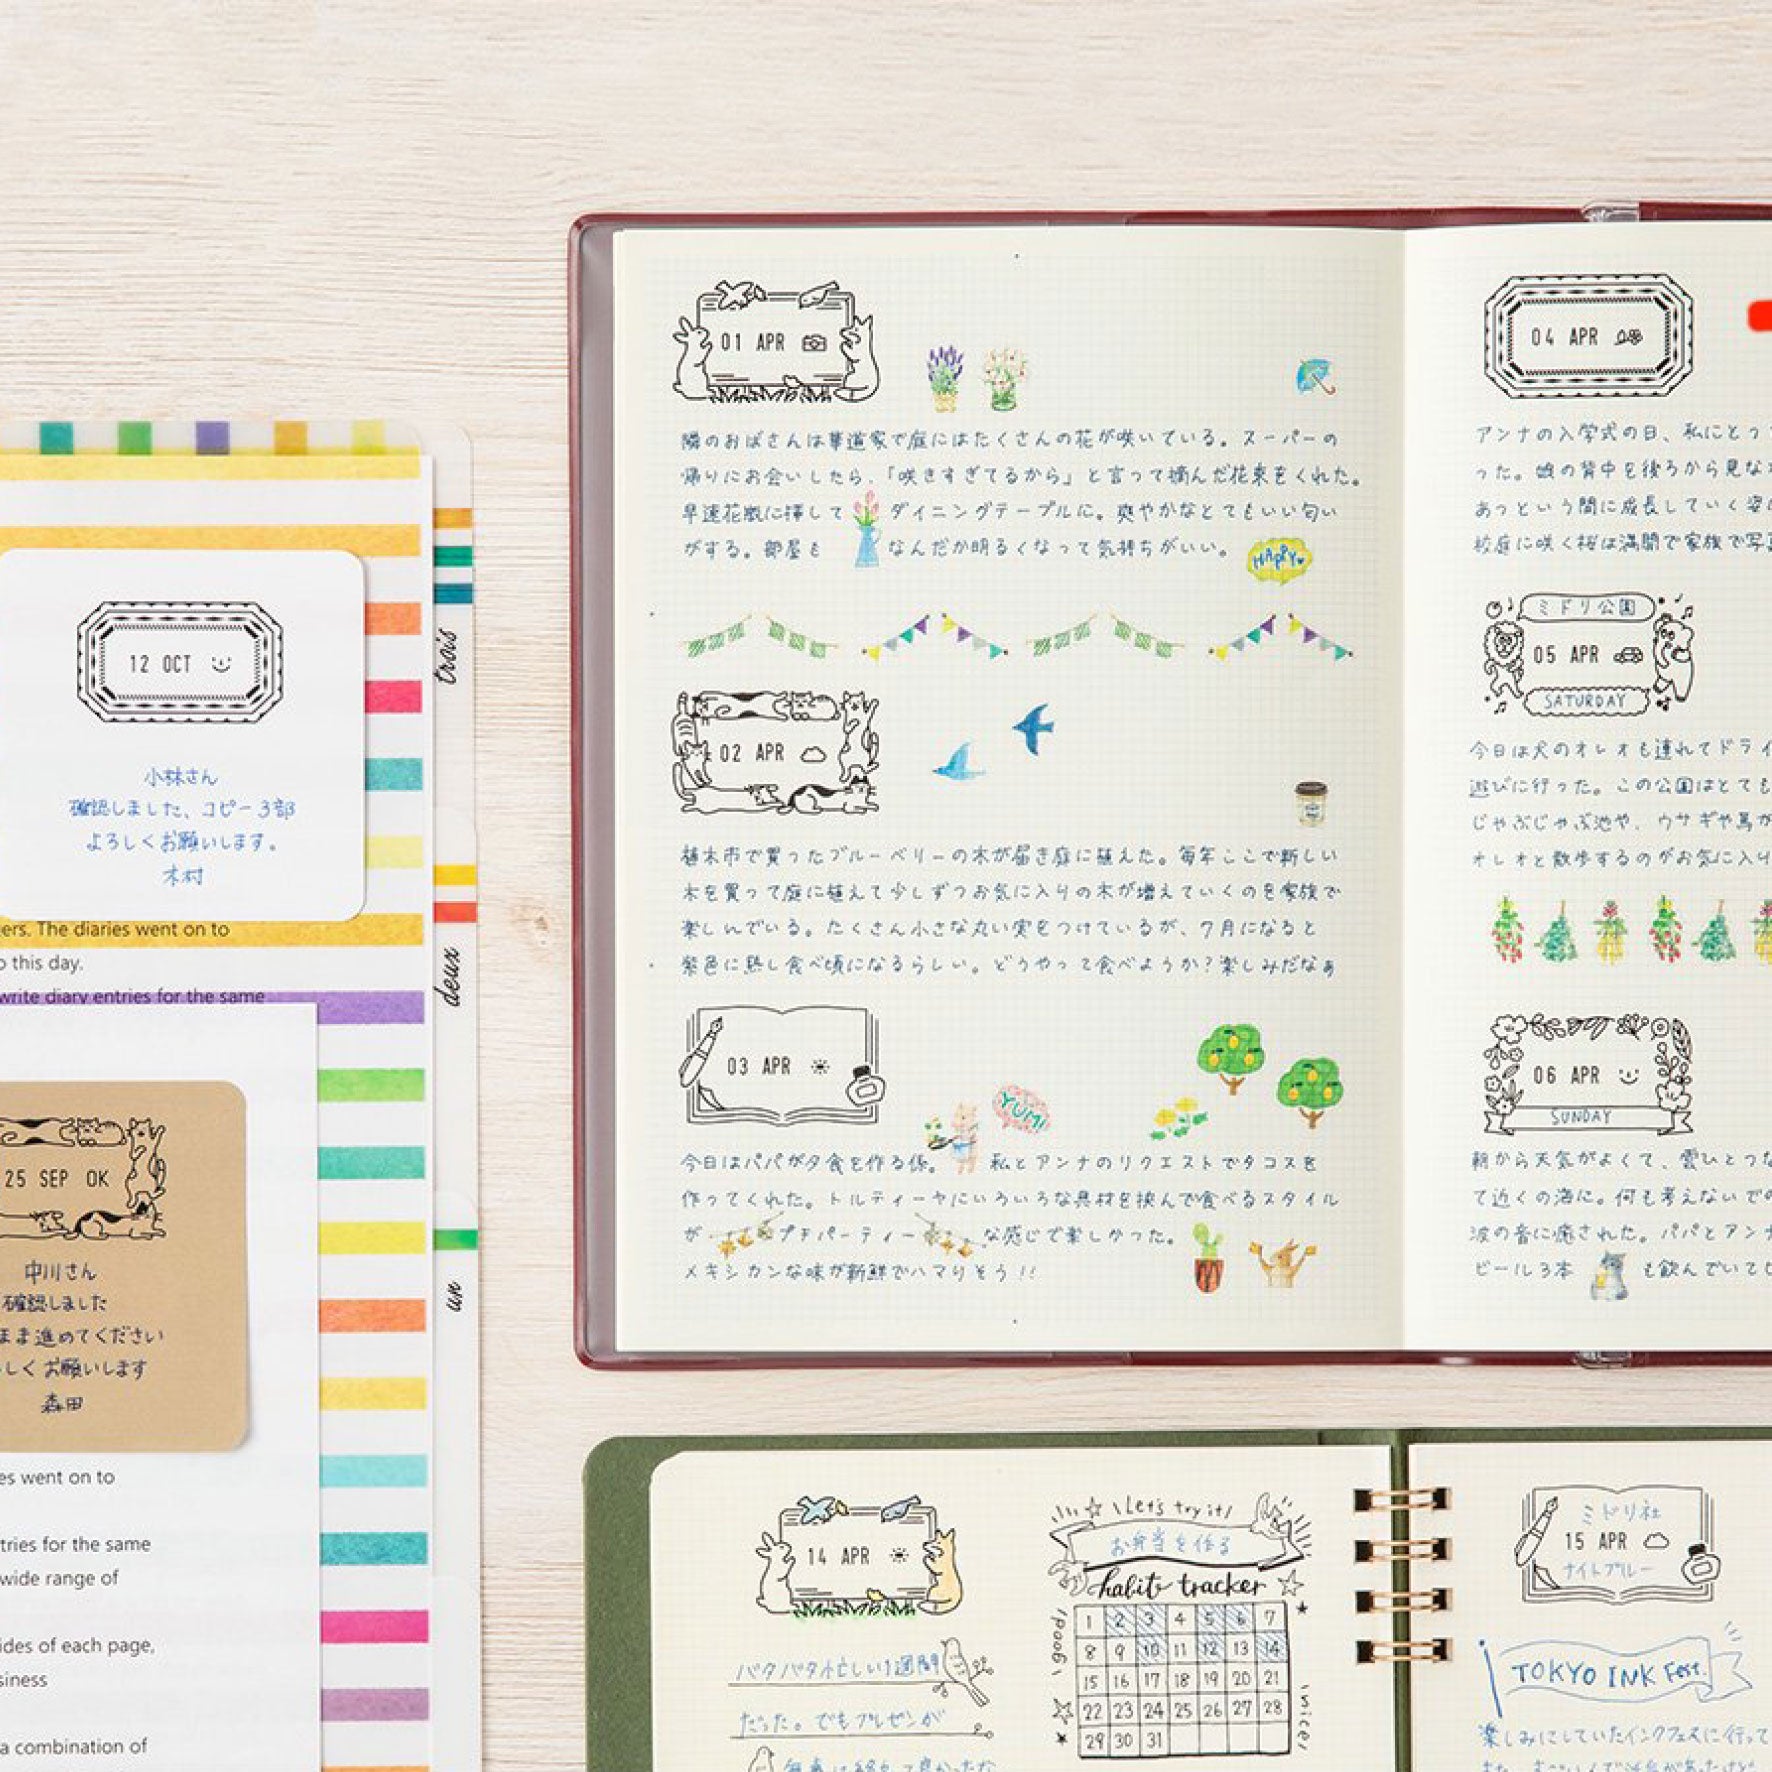 12 OCT
小林さん
確認しました、コピー3部
よろしくお願いします。
木村
ers. The diaries went on to
this day.
write diary entries for the same
25 SEP OK
中川さん
確認しました
まま進めてください
しくお願いします
森田
es went on to
tries for the same
wide range of
ides of each page,
siness
a combination of
trois
deux
un
01 APR
隣のおばさんは華道家で庭にはたくさんの花が咲いている。スーパーの
帰りにお会いしたら、「咲きすぎてるから」と言って摘んだ花束をくれた。
早速花瓶に挿して ダイニングテーブルに。爽やかなとてもいい匂い
がする。部屋も なんだか明るくなって気持ちがいい。
HAPPY
02 APR
植木市で買ったブルーベリーの木が届き庭に植えた。毎年ここで新しい
木を買って庭に植えて少しずつお気に入りの木が増えていくのを家族で
楽しんでいる。たくさん小さな丸い実をつけているが、7月になると
紫色に熟し食べ頃になるらしい。どうやって食べようか?楽しみだなぁ
03 APR
YUM!
今日はパパが夕食を作る係。 私とアンナのリクエストでタコスを
作ってくれた。トルティーヤにいろいろな具材を挟んで食べるスタイル
が プチパーティー な感じで楽しかった。
メキシカンな味が新鮮でハマりそう!!
04 APR
アンナの入学式の日、私にとっ
った。娘の背中を後ろから見な
あっという間に成長していく姿
校庭に咲く桜は満開で家族で写真
ミドリ公園
05 APR
SATURDAY
今日は犬のオレオも連れてドライ
遊びに行った。この公園はとても
じゃぶじゃぶ池や、ウサギや馬が
オレオと散歩するのがお気に入り
06 APR
SUNDAY
朝から天気がよくて、雲ひとつな
て近くの海に。何も考えないで
波の音に癒された。パパとアンナ
ビール3本 も飲んでいて
14 APR
バタバタ忙しい1週間
だった。でもプレゼンが
Let's try it!
お弁当を作る
habit tracker
1 2 3 4 5 6 7
8 9 10 11 12 13 14
15 16 17 18 19 20 21
22 23 24 25 26 27 28
29 30 31
good!
nice!
ミドリ社
15 APR
ナイトブルー
TOKYO INK Fest.
楽しみにしていたインクフェスに行って